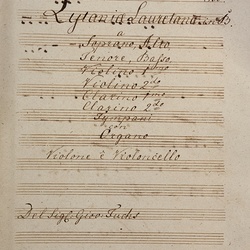 Lytaniæ Lauretanæ in B.
a
Soprano, Alto
Tenore, Basso
Violino 1mo
Violino 2do
Clarino 1mo
Clarino 2do
Tympani
con
Organo
Violone è Violoncello
Del Sigl: Giov: Fuchs